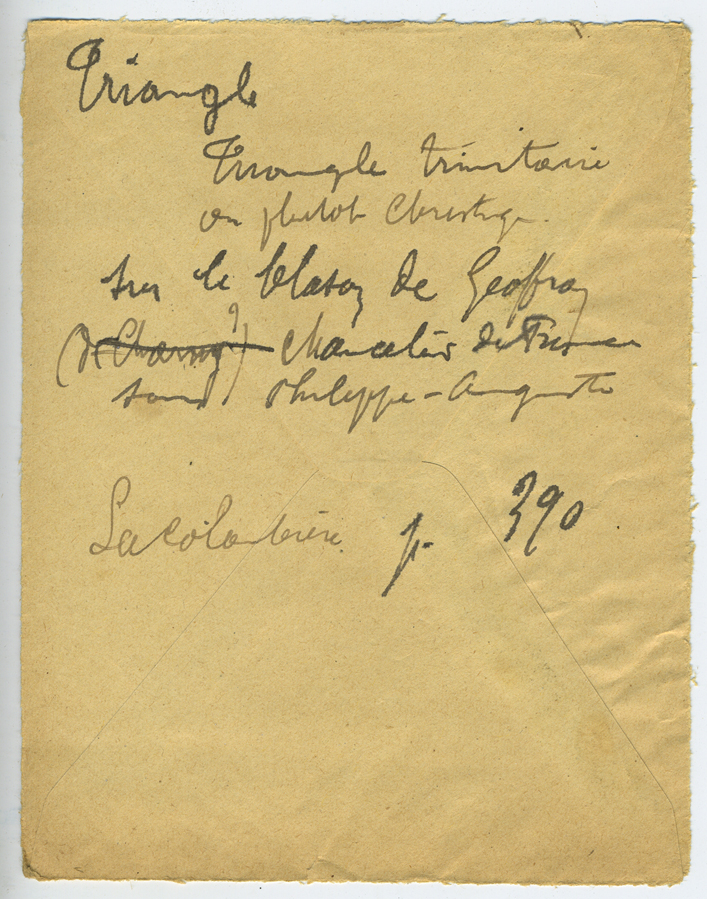 Triangle
Triangle trinitaire
ou plutot Christique.
sur le blason de Geoffroy
(de Charny ?) Chancelier de France
sous Philippe-Auguste
La Colombière p. 390